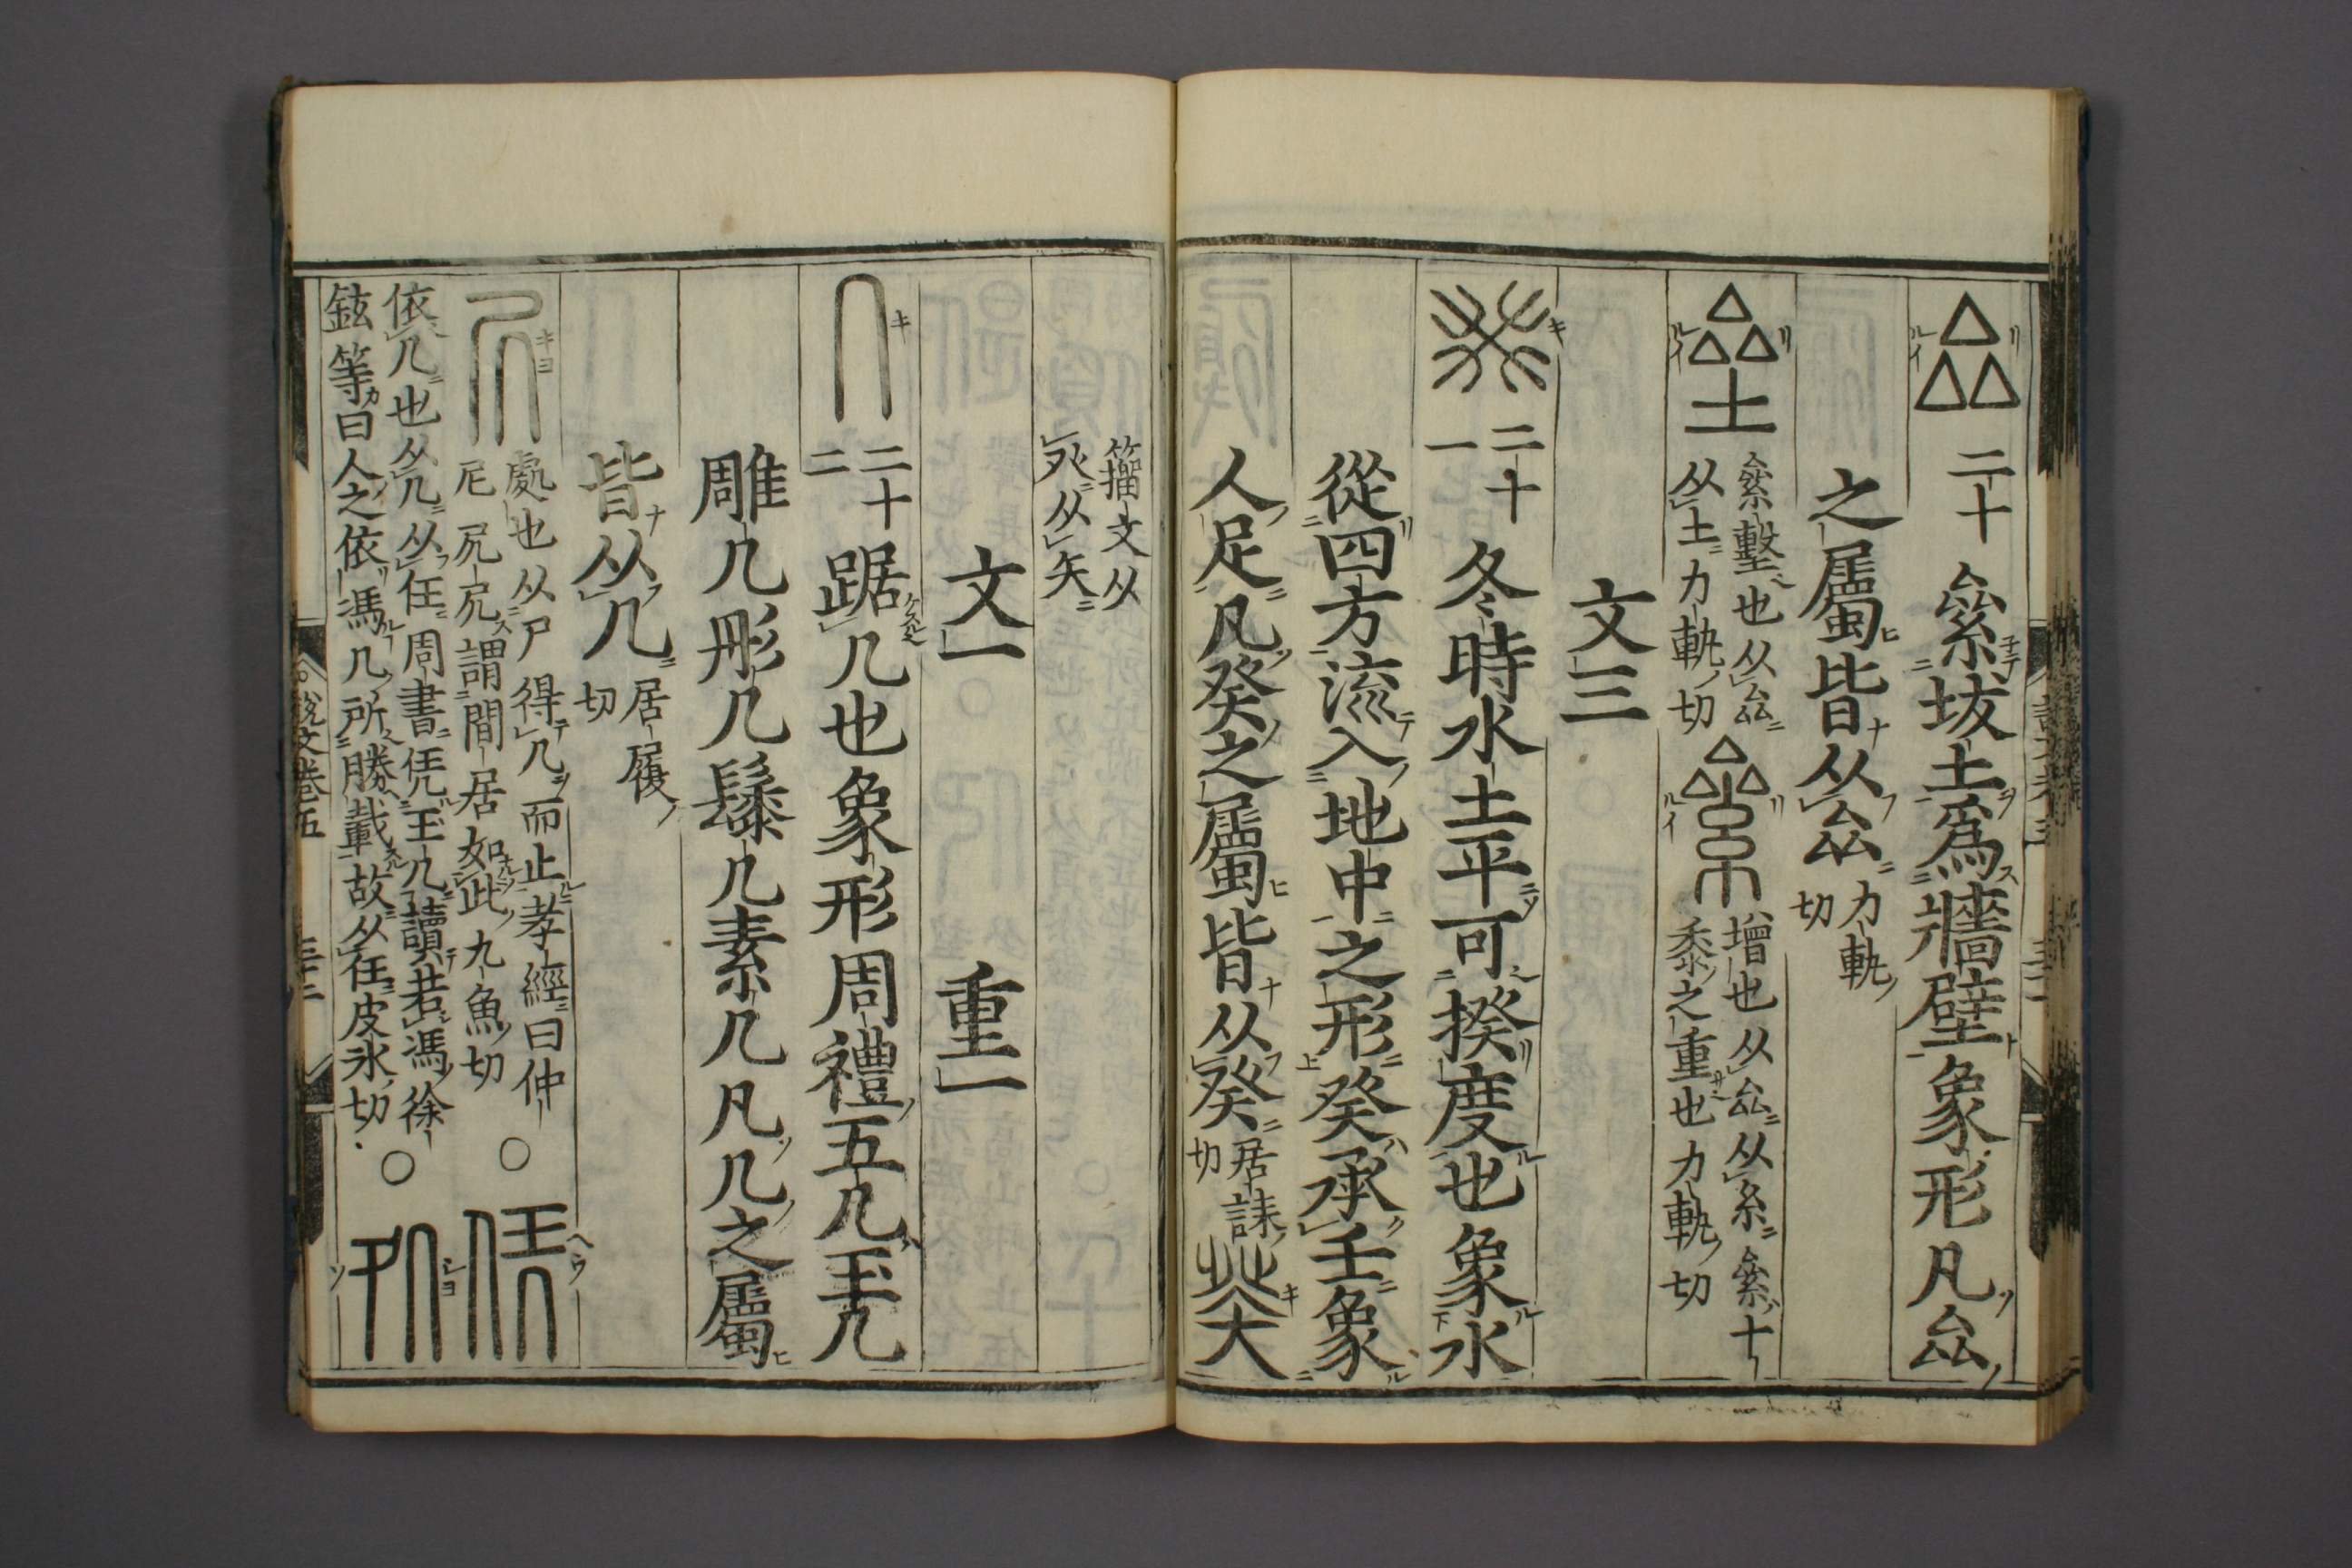 厽 二十 絫坺土爲牆壁象形凡厽
之屬皆从厽 力軌切
垒 絫墼也从厽从土力軌切 絫 增也从厽从糸絫十黍之重也力軌切
文三
癸 二十一 冬時水土平可揆度也象水
從四方流入地中之形癸承壬象
人足凡癸之屬皆从癸 居誄切 𤼩
籀文从癶从矢
文一 重一
几 二十二 踞几也象形周禮五几玉几
雕几彤几髹几素几凡几之屬
皆从几 居履切
凥 處也从尸得几而止孝經曰仲尼凥凥謂閒居如此九魚切 ○ 凭
依几也从几从任周書凭玉几讀若馮徐鉉等曰人之依馮几所勝載故从任皮冰切 ○
說文卷五 三十二